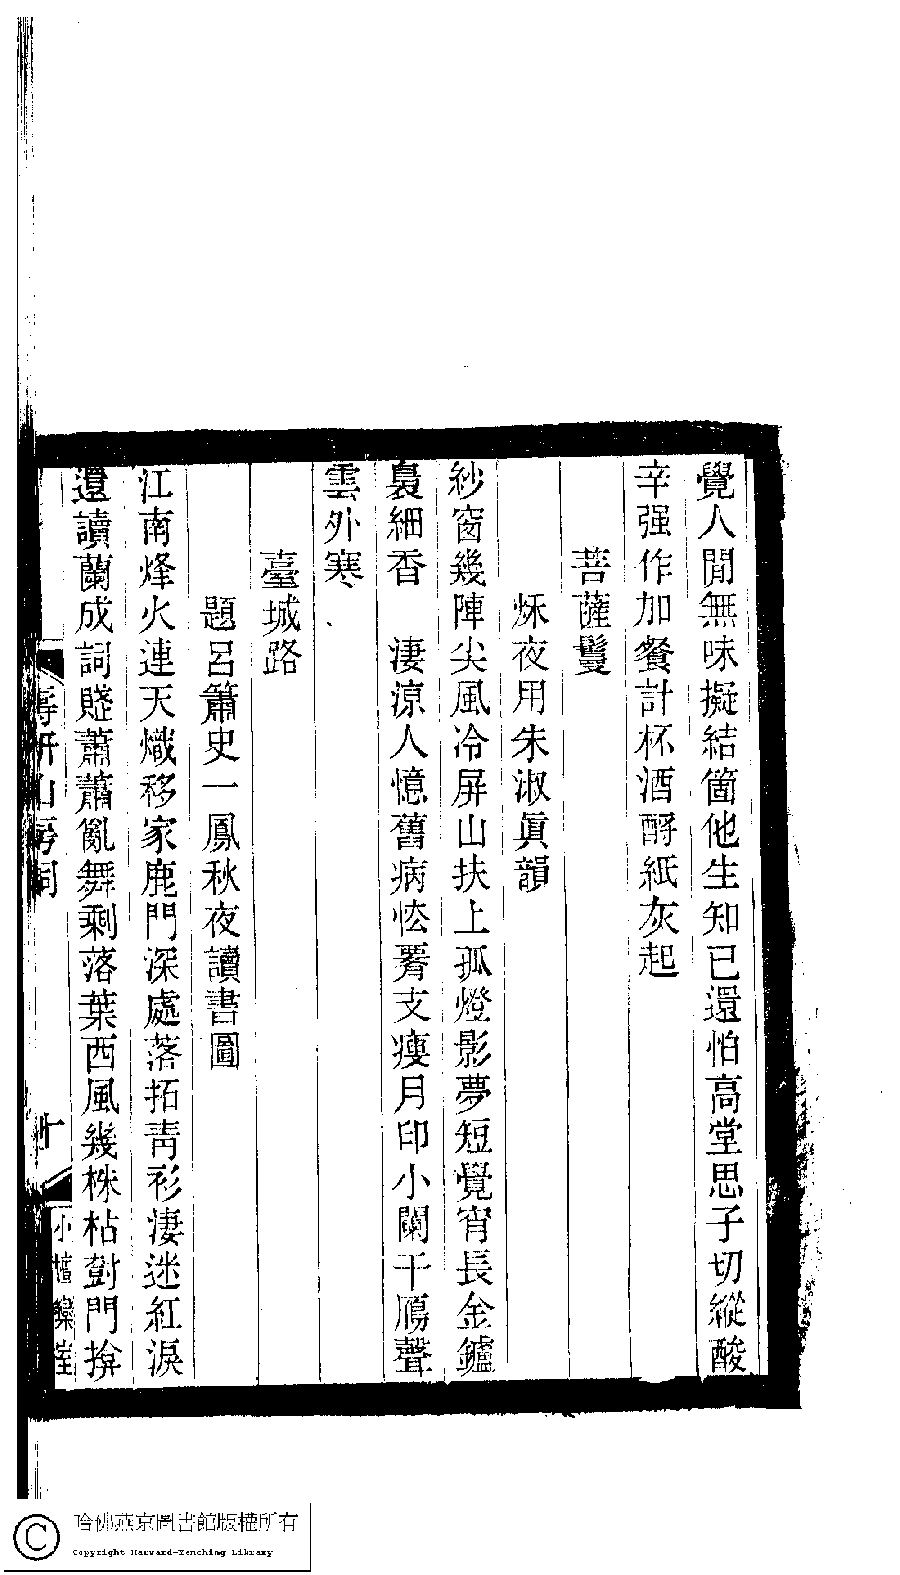 覺人閒無味擬結箇他生知已還怕高堂思子切縱酸
辛强作加餐計杯酒酹紙灰起
菩薩鬘
秌夜用朱淑眞韻
紗窗幾陣尖風冷屏山扶上孤燈影夢短覺宵長金鑪
裊細香　淒涼人憶舊病怯羅支瘦月印小闌干鴈聲
雲外寒
臺城路
題呂簫史一鳳秋夜讀書圖
江南烽火連天熾移家鹿門深處落拓靑衫淒迷紅淚
還讀蘭成詞賤蕭蕭亂舞剩落葉西風幾株枯對門揜
壽研山房詞
十
小檀欒室
哈佛燕京圖書館版權所有
Copyright Harvard-Yenching Library